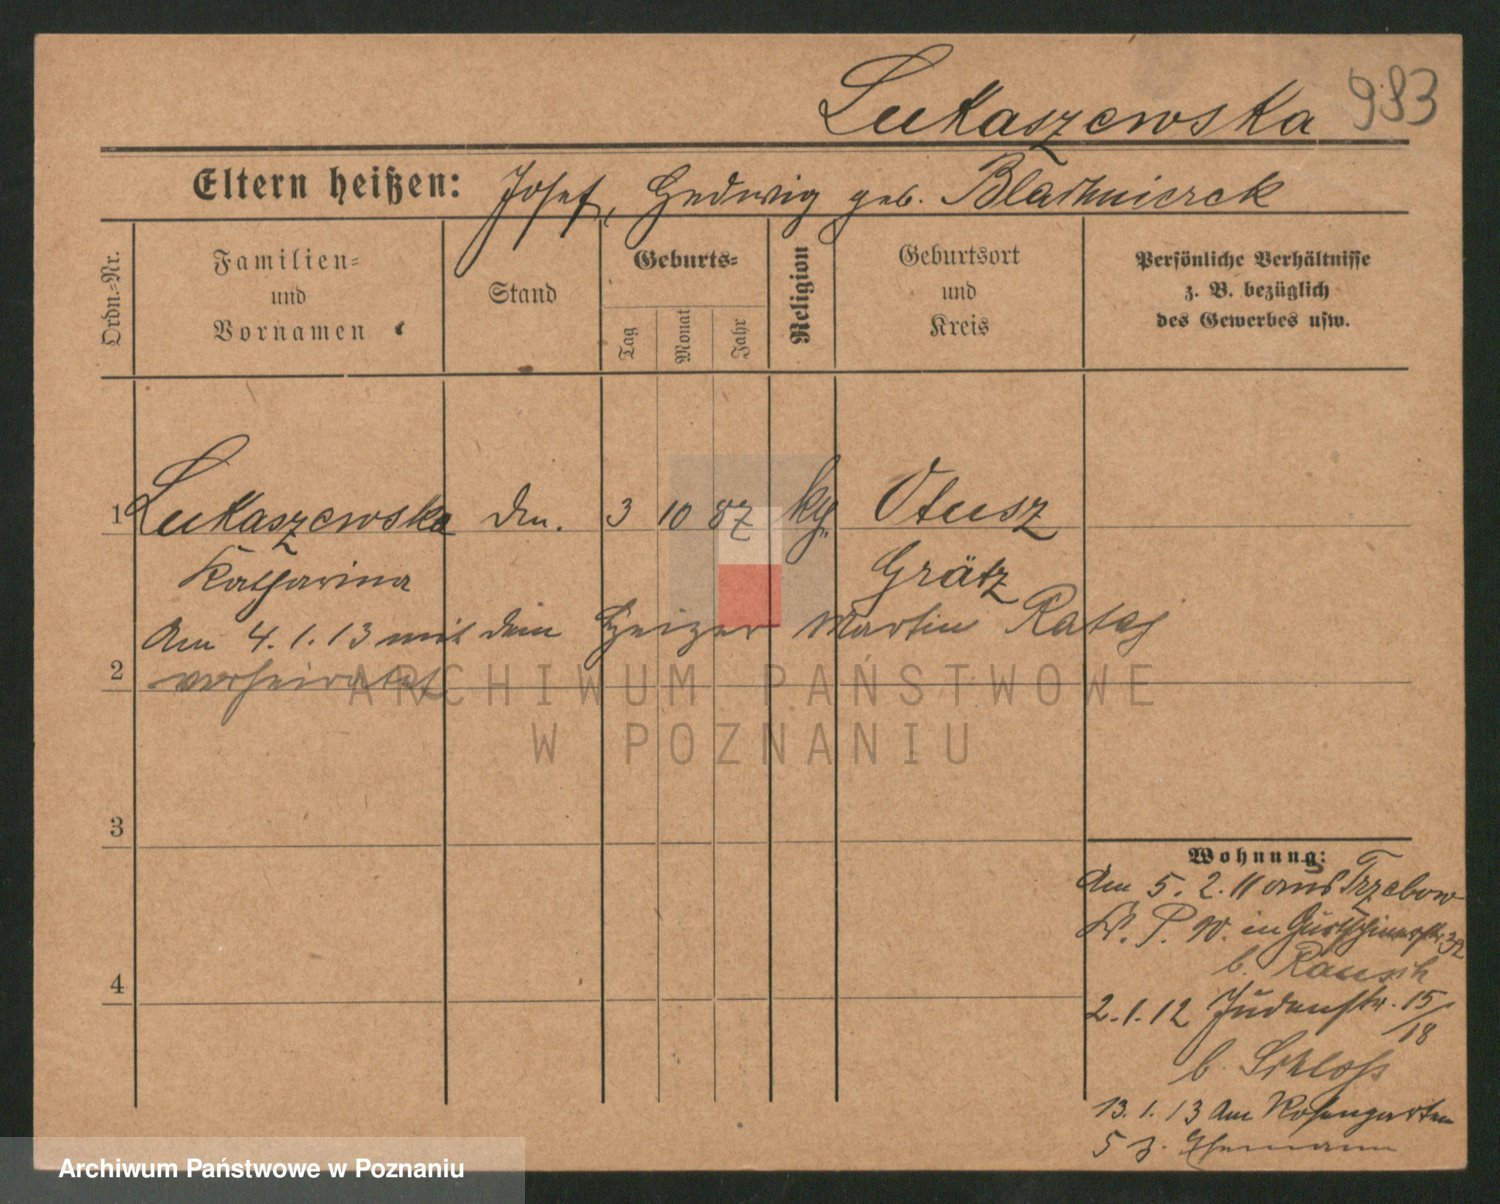 Lukaszewska 983
Eltern heißen: Josef, Hedwig geb.
Ordn.=Nr.
Familien=
und
Vornamen
Stand
Geburts=
Tag
Monat
Jahr
Religion
Geburtsort
und
Kreis
Persönliche Verhältnisse
z. B. bezüglich
des Gewerbes usw.
1 Lukaszewska 3 10 87 Otusz
Katharina Grätz
Am 4. 1. 13 mit dem Heizer Martin Rataj
2 verheiratet
ARCHIWUM PAŃSTWOWE
W POZNANIU
3
4
Wohnung:
Am 5. 2. 11 aus
32
b.
2. 1. 12 Judenstr. 15/
18
b. Schloss
13. 1. 13 Am Rosengarten
5 z. Ehemann
Archiwum Państwowe w Poznaniu